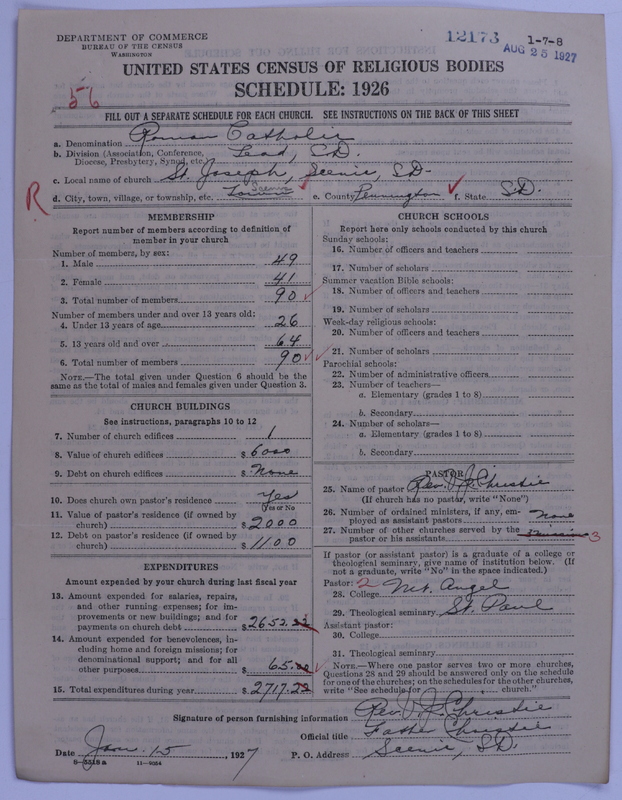 DEPARTMENT OF COMMERCE
BUREAU OF THE CENSUS
WASHINGTON
12173
1-7-8
AUG 25 1927
UNITED STATES CENSUS OF RELIGIOUS BODIES
SCHEDULE: 1926
56
FILL OUT A SEPARATE SCHEDULE FOR EACH CHURCH. SEE INSTRUCTIONS ON THE BACK OF THIS SHEET
a. Denomination Roman Catholic
b. Division (Association, Conference, Diocese, Presbytery, Synod, etc.) Lead, S.D.
c. Local name of church St. Joseph, Scenic, S.D.
R
d. City, town, village, or township, etc. Scenic Town e. County Pennington f. State S.D.
MEMBERSHIP
Report number of members according to definition of
member in your church
Number of members, by sex:
1. Male 49
2. Female 41
3. Total number of members 90
Number of members under and over 13 years old:
4. Under 13 years of age 26
5. 13 years old and over 64
6. Total number of members 90
NOTE.—The total given under Question 6 should be the
same as the total of males and females given under Question 3.
CHURCH BUILDINGS
See instructions, paragraphs 10 to 12
7. Number of church edifices 1
8. Value of church edifices $ 6000
9. Debt on church edifices $ None
10. Does church own pastor's residence Yes
Yes or No
11. Value of pastor's residence (if owned by
church) $ 2000
12. Debt on pastor's residence (if owned by
church) $ 1100
EXPENDITURES
Amount expended by your church during last fiscal year
13. Amount expended for salaries, repairs,
and other running expenses; for im-
provements or new buildings; and for
payments on church debt $ 2652.22
14. Amount expended for benevolences, in-
cluding home and foreign missions; for
denominational support; and for all
other purposes $ 65.00
15. Total expenditures during year $ 2717.22
CHURCH SCHOOLS
Report here only schools conducted by this church
Sunday schools:
16. Number of officers and teachers
17. Number of scholars
Summer vacation Bible schools:
18. Number of officers and teachers
19. Number of scholars
Week-day religious schools:
20. Number of officers and teachers
21. Number of scholars
Parochial schools:
22. Number of administrative officers
23. Number of teachers—
a. Elementary (grades 1 to 8)
b. Secondary
24. Number of scholars—
a. Elementary (grades 1 to 8)
b. Secondary
PASTOR
25. Name of pastor Rev. V. J. Christie
(If church has no pastor, write "None")
26. Number of ordained ministers, if any, em-
ployed as assistant pastors None
27. Number of other churches served by the
pastor or his assistants 3
If pastor (or assistant pastor) is a graduate of a college or
theological seminary, give name of institution below. (If
not a graduate, write "No" in the space indicated.)
Pastor: 2
28. College Mt. Angel
29. Theological seminary St. Paul
Assistant pastor:
30. College
31. Theological seminary
NOTE.—Where one pastor serves two or more churches,
Questions 28 and 29 should be answered only on the schedule
for one of the churches; on the schedules for the other churches,
write "See schedule for church."
Signature of person furnishing information Rev. V. J. Christie
Official title Father Christie
Date Jan. 15, 1927 P. O. Address Scenic, S.D.
8-5518a 11-9054